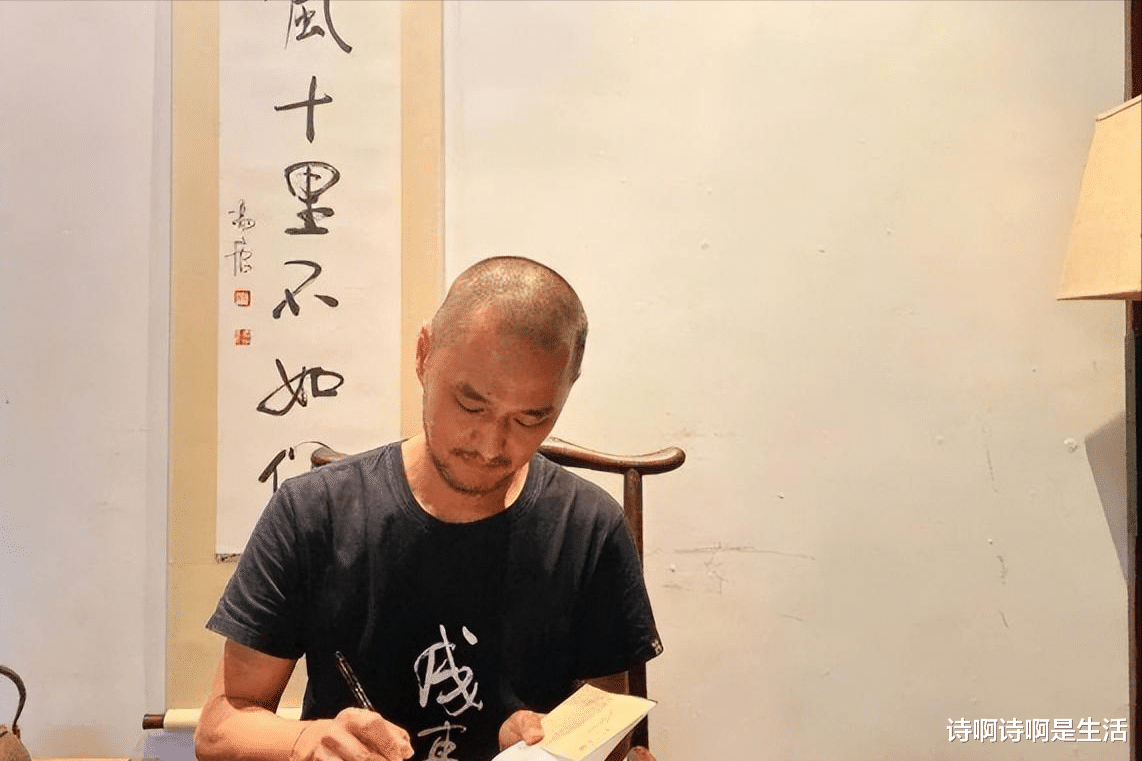 風十里不如你
馮唐
成
诗啊诗啊是生活